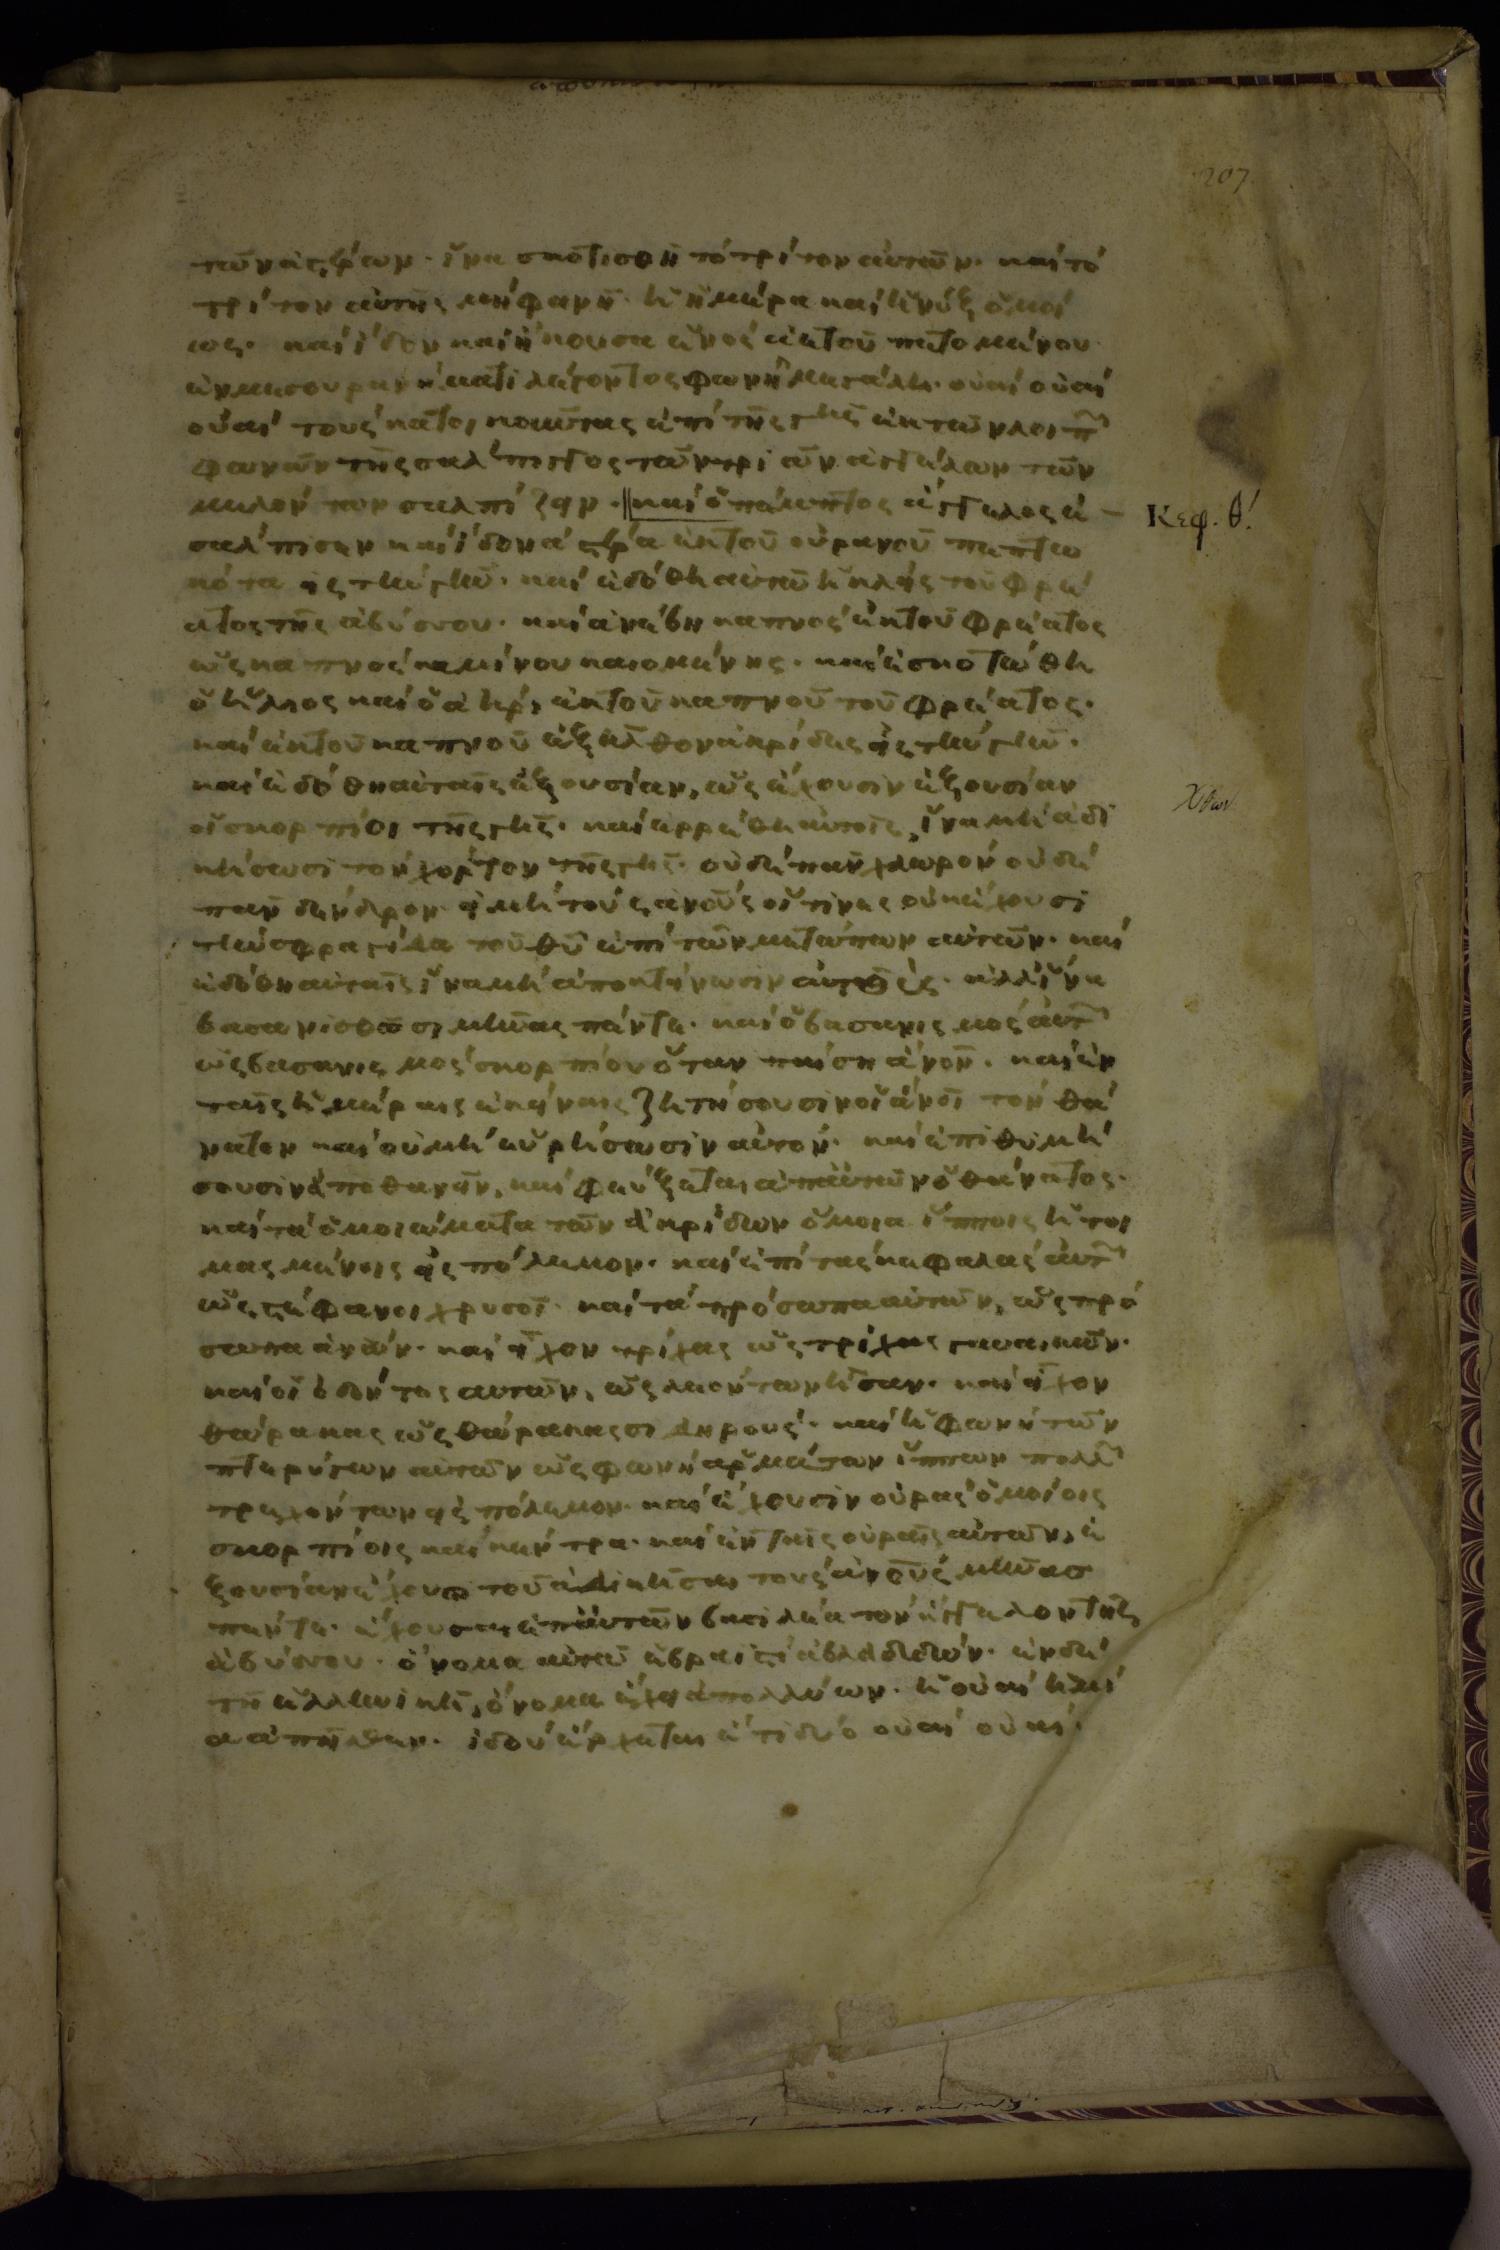 207
τῶν ἀστέρων· ἵνα σκοτισθῆ τὸ τρίτον αὐτῶν· καὶ τὸ
τρίτον αὐτῆς μὴ φανῆ· ἡ ἡμέρα καὶ ἡ νὺξ ὁμοί
ως· καὶ ἴδον καὶ ἤκουσα ἑνὸς ἀετοῦ πετομένου
ἐν μεσουρανήματι λέγοντος φωνῆ μεγάλη· οὐαὶ οὐαὶ
οὐαὶ τοὺς κατοικοῦντας ἐπὶ τῆς γῆς ἐκ τῶν λοιπ
φωνῶν τῆς σάλπιγγος τῶν τριῶν ἀγγέλων τῶν
μελόντων σαλπίζειν· καὶ ὁ πέμπτος ἄγγελος ἐ
Κεφ. θ.
σάλπισεν καὶ ἴδον ἀστέρα ἐκ τοῦ οὐρανοῦ πεπτω
κότα εἰς τὴν γῆν· καὶ ἐδόθη αὐτῶ ἡ κλεὶς τοῦ φρέ
ατος τῆς ἀβύσσου· καὶ ἀνέβη καπνὸς ἐκ τοῦ φρέατος
ὡς καπνὸς καμίνου καιομένης· καὶ ἐσκοτώθη
ὁ ἥλιος καὶ ὁ ἀὴρ, ἐκ τοῦ καπνοῦ τοῦ φρέατος·
καὶ ἐκ τοῦ καπνοῦ ἐξῆλθον ἀκρίδες εἰς τὴν γῆν·
καὶ ἐδόθη αὐταῖς ἐξουσίαν, ὡς ἔχουσιν ἐξουσίαν
οἱ σκορπίοι τῆς γῆς· καὶ ἐρρέθη αὐταῖς, ἵνα μὴ ἀδι
κήσωσι τὸν χόρτον τῆς γῆς· οὐδὲ πᾶν χλωρὸν οὐδὲ
πᾶν δένδρον· εἰ μὴ τοὺς ἀνοὺς οἵτινες οὐκ ἔχουσι
τὴν σφραγίδα τοῦ θυ ἐπὶ τῶν μετώπων αὐτῶν· καὶ
ἐδόθη αὐταῖς ἵνα μὴ ἀποκτείνωσιν αὐτοὺς· ἀλλ ἵνα
βασανισθῶσι μῆνας πέντε· καὶ ὁ βασανισμὸς αὐτ
ὡς βασανισμὸς σκορπίου ὅταν παίση ἄνον· καὶ ἐν
ταῖς ἡμέραις ἐκείναις ζητήσουσιν οἱ ἄνοι τὸν θά
νατον καὶ οὐ μὴ εὑρήσωσιν αὐτόν· καὶ ἐπιθυμή
σουσιν ἀποθανεῖν, καὶ φεύξεται ἀπ αὐτῶν ὁ θάνατος·
καὶ τὰ ὁμοιώματα τῶν ἀκρίδων ὅμοια ἵπποις ἡτοι
μασμένοις εἰς πόλεμον· καὶ ἐπὶ τὰς κεφαλὰς αὐτ
ὡς στέφανοι χρυσοῖ· καὶ τὰ πρόσωπα αὐτῶν, ὡς πρό
σωπα ἀνων· καὶ εἶχον τρίχας ὡς τρίχας γυναικῶν·
καὶ οἱ ὀδόντες αὐτῶν, ὡς λεόντων ἦσαν· καὶ εἶχον
θώρακας ὡς θώρακας σιδηρούς· καὶ ἡ φωνὴ τῶν
πτερύγων αὐτῶν ὡς φωνὴ ἁρμάτων ἵππων πολλ
τρεχόντων εἰς πόλεμον· καὶ ἔχουσιν οὐρὰς ὁμοίοις
σκορπίοις καὶ κέντρα· καὶ ἐν ταῖς οὐραῖς αὐτῶν, ἐ
ξουσίαν ἔχουσι τοῦ ἀδικῆσαι τοὺς ἀνοὺς μῆνας
πέντε· ἔχουσαι ἐπ αὐτῶν βασιλέα τὸν ἄγγελον τῆς
ἀβύσσου· ὄνομα αὐτῶ ἑβραϊστὶ ἀβλαδδών· ἐν δὲ
τῆ ἑλληνικῆ, ὄνομα ἔχει ἀπολλύων· ἡ οὐαὶ ἡ μί
α ἀπῆλθεν· ἰδοὺ ἔρχεται ἔτι δύο οὐαὶ οὐαὶ·